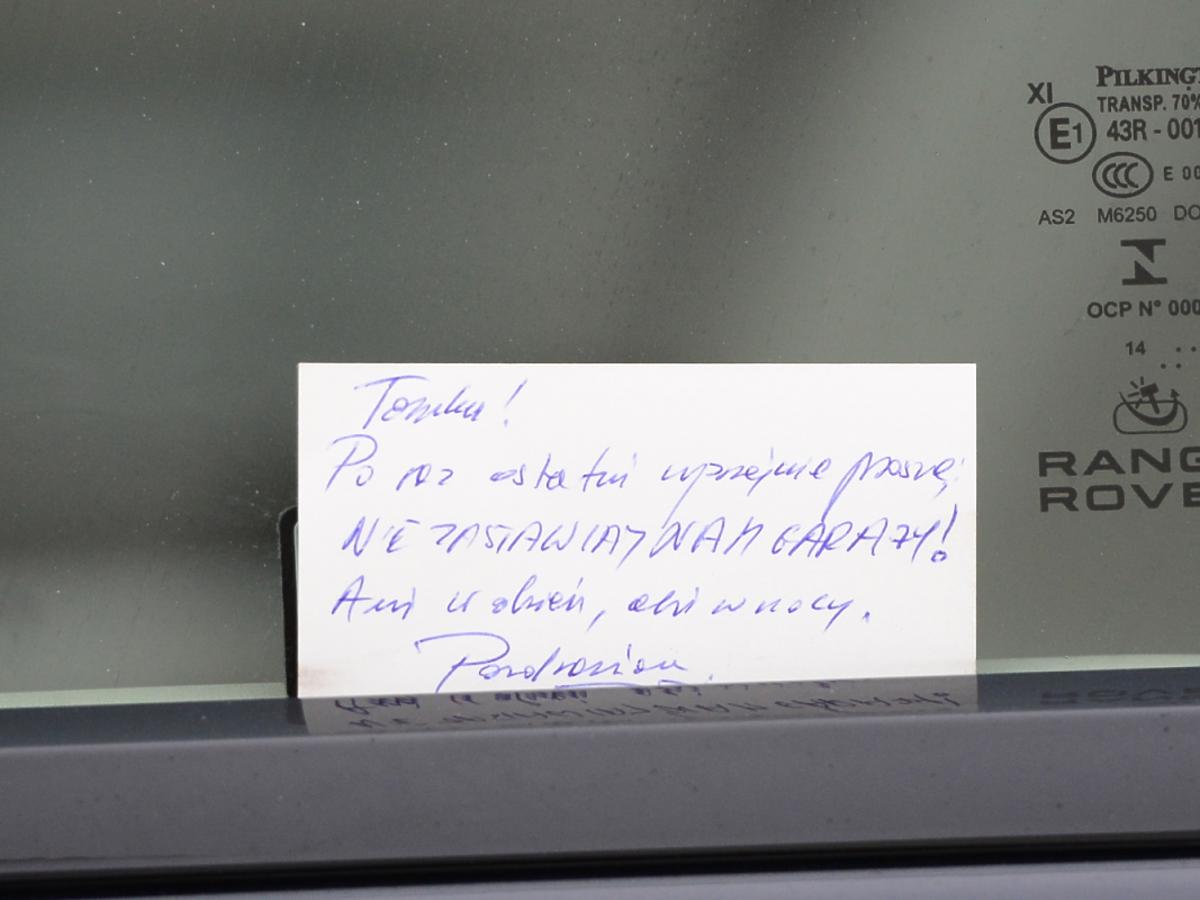 Tomku!
Po raz ostatni uprzejmie proszę:
NIE ZASTAWIAJ NAM GARAŻY!
Ani w dzień, ani w nocy.
Pozdrawiam
XI
PILKINGT
TRANSP. 70%
E1 43R - 001
CCC E 00
AS2 M6250 DO
OCP N° 000
14 ..
..
RANG
ROVE